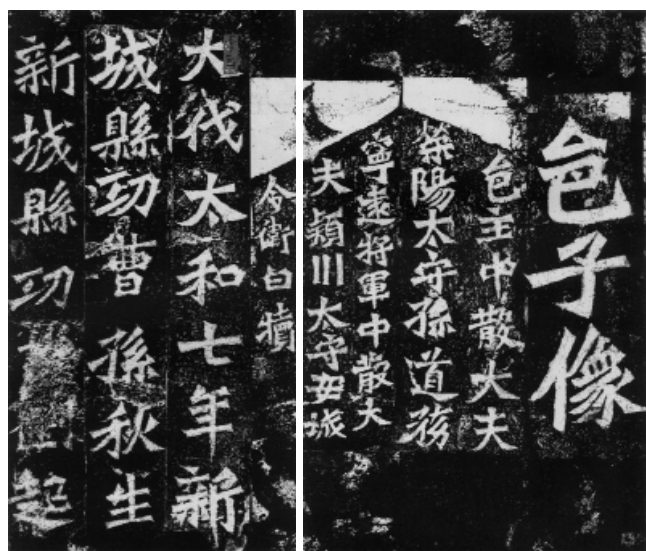 邑子像
邑主中散大夫
荥陽太守孫道務
寧遠将軍中散大
夫潁川太守安城
令衛白犢
大伐太和七年新
城縣功曹孫秋生
新城縣功曹劉起